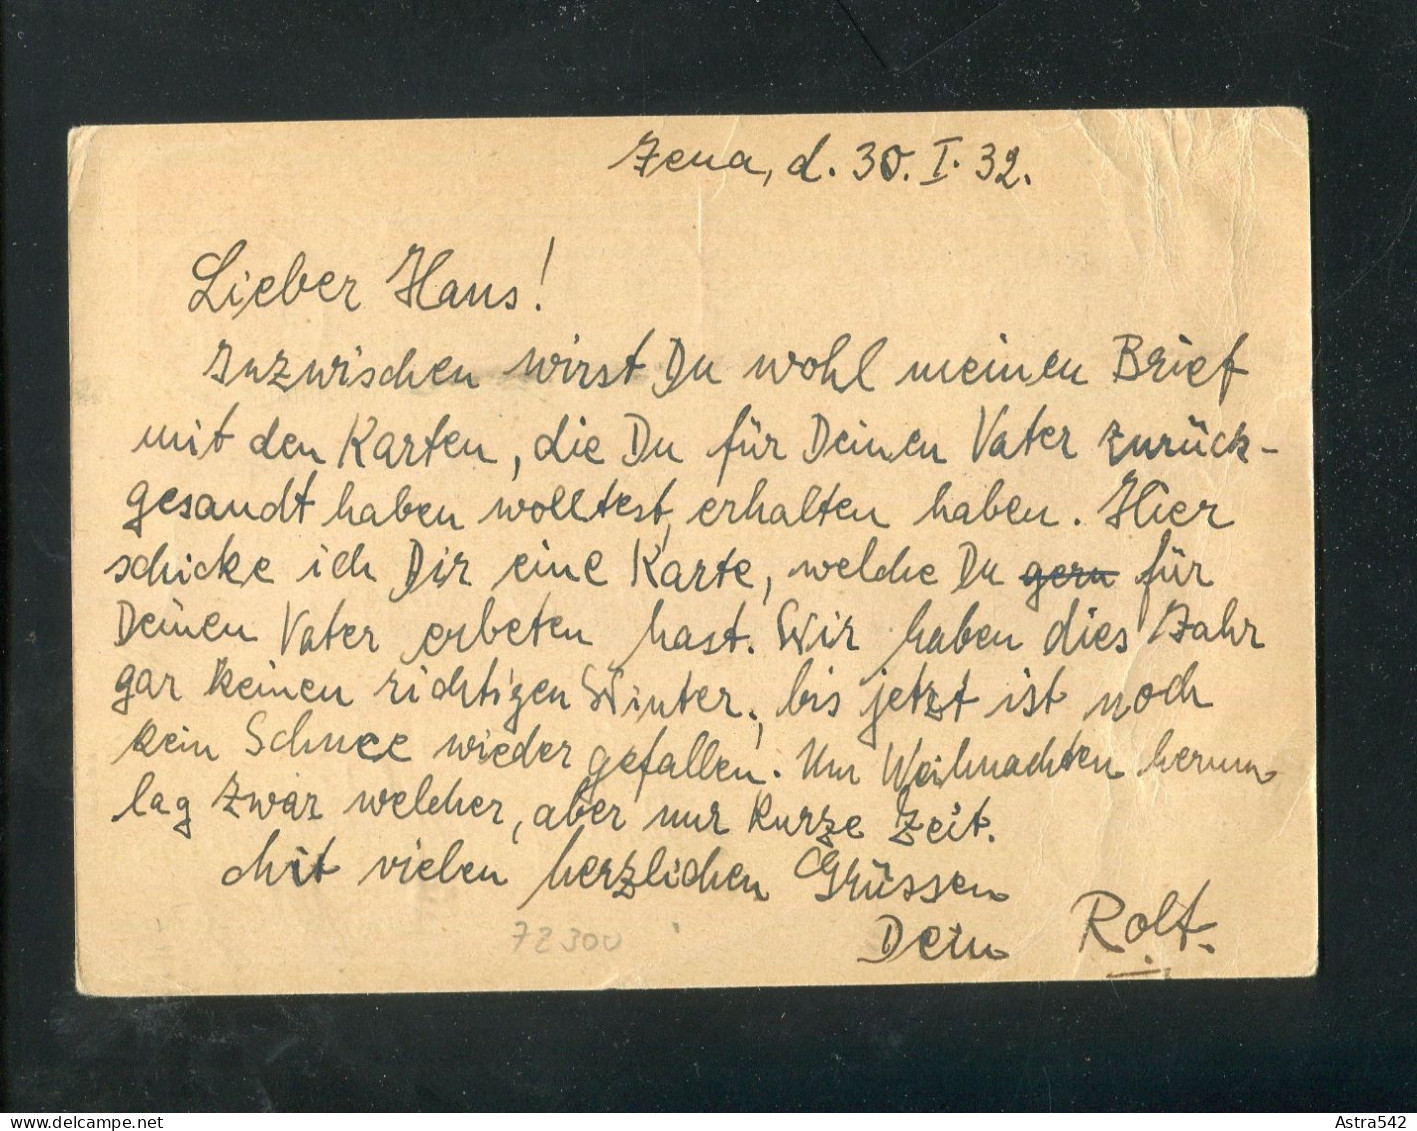 Jena, d. 30. I. 32.
Lieber Hans!
Inzwischen wirst Du wohl meinen Brief
mit den Karten, die Du für Deinen Vater zurück-
gesandt haben wolltest, erhalten haben. Hier
schicke ich Dir eine Karte, welche Du gern für
Deinen Vater erbeten hast. Wir haben dies Jahr
gar keinen richtigen Winter, bis jetzt ist noch
kein Schnee wieder gefallen. Um Weihnachten herum
lag zwar welcher, aber nur kurze Zeit.
Mit vielen herzlichen Grüssen
Dein Rolf.
7Z300
Astra542